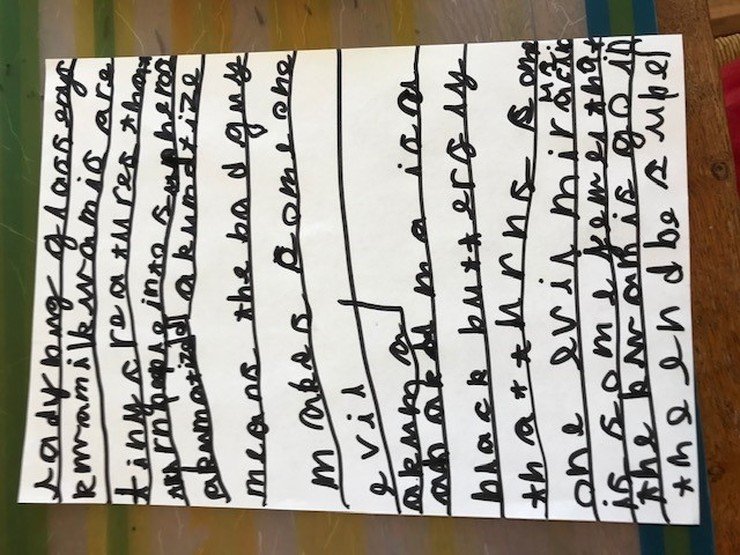 ladybug glossery
kwamikwamis are
tiny creatures that
turn people into supheros
akumatized akumatize
means the bad guy
makes someone
evil
akuma
an akuma is a
black butterfly
that turns someone
one evil miracu
is somekemes that
the kwamis go in
the end be super